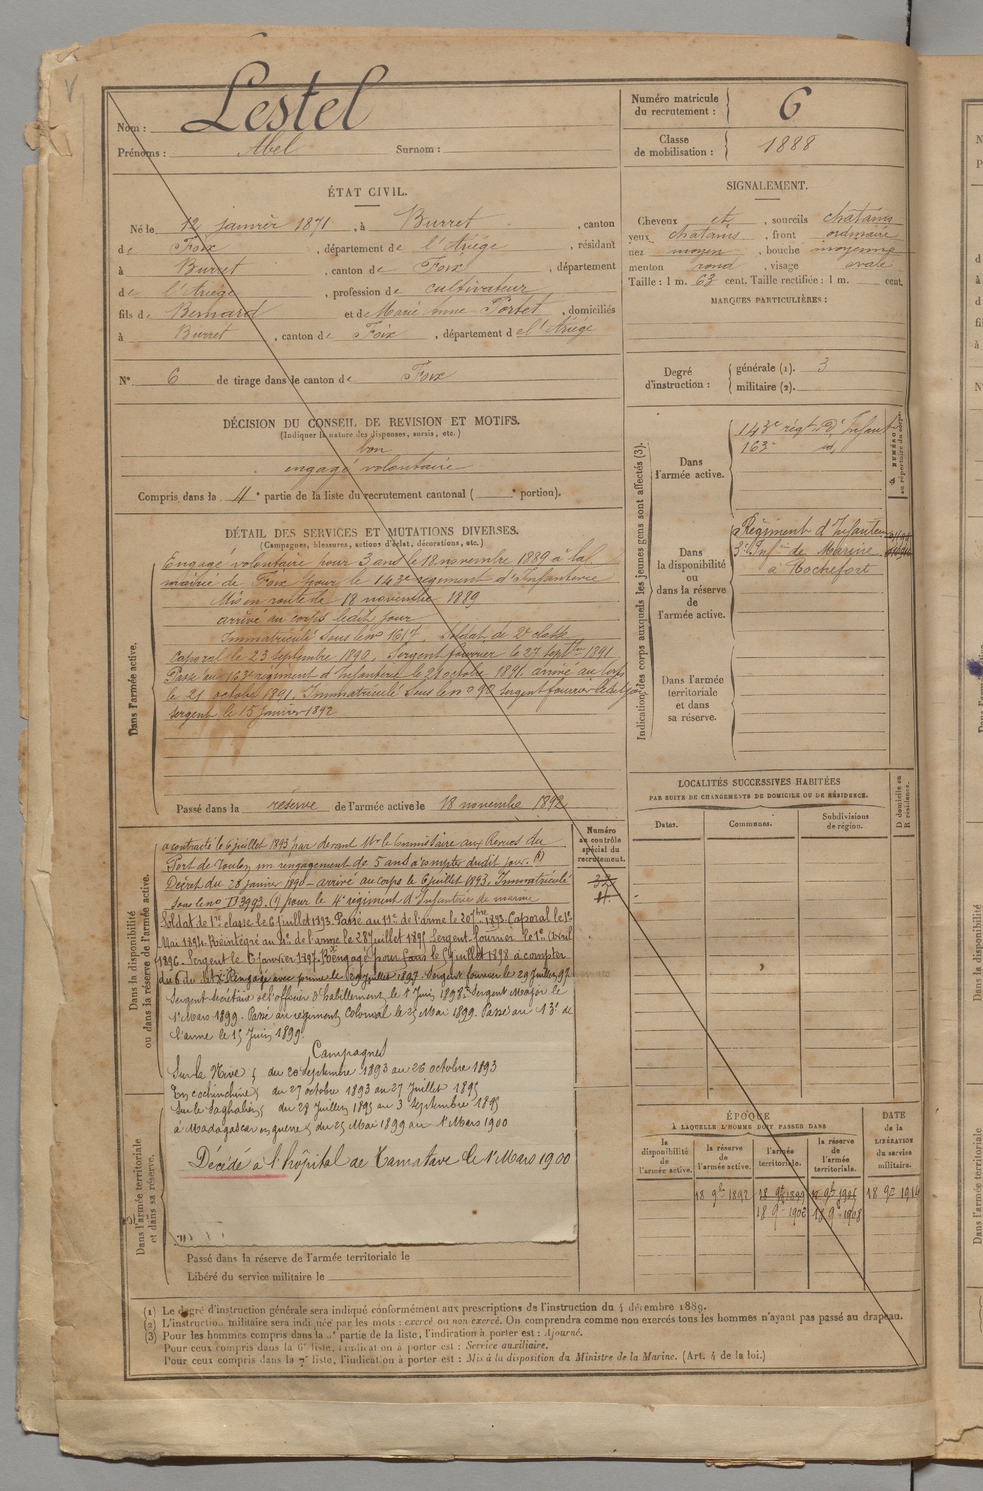 Nom : Lestel
Prénoms : Abel Surnom :
Numéro matricule du recrutement : 6
Classe de mobilisation : 1888
ÉTAT CIVIL.
Né le 12 janvier 1871, à Burret, canton
de Foix, département de l'Ariège, résidant
à Burret, canton de Foix, département
de l'Ariège, profession de cultivateur
fils de Bernard et de Marie Anne Portet, domiciliés
à Burret, canton de Foix, département d e l'Ariège
N° 6 de tirage dans le canton de Foix
SIGNALEMENT.
Cheveux et, sourcils chatains
yeux chatains, front ordinaire
nez moyen, bouche moyenne
menton rond, visage ovale
Taille : 1 m. 63 cent. Taille rectifiée : 1 m. cent.
MARQUES PARTICULIÈRES :
Degré d'instruction : générale (1). 3
militaire (2).
DÉCISION DU CONSEIL DE REVISION ET MOTIFS.
(Indiquer la nature des dispenses, sursis, etc.)
bon
engagé volontaire
Compris dans la 4e partie de la liste du recrutement cantonal ( e portion).
DÉTAIL DES SERVICES ET MUTATIONS DIVERSES.
(Campagnes, blessures, actions d'éclat, décorations, etc.)
Dans l'armée active.
Engagé volontaire pour 3 ans le 18 novembre 1889 à la
mairie de Foix pour le 143e régiment d'Infanterie
Mis en route le 18 novembre 1889
arrivé au corps ledit jour
Immatriculé sous le no 1617. Soldat de 2e classe
Caporal le 23 septembre 1890. Sergent fourrier le 27 septbre 1891
Passé au 163e régiment d'Infanterie le 21 octobre 1891. arrivé au corps
le 21 octobre 1891. Immatriculé sous le no 90 sergent fourrier ledit jour
sergent le 15 janvier 1892
Passé dans la réserve de l'armée active le 18 novembre 1892
Indication des corps auxquels les jeunes gens sont affectés (3).
NUMÉRO au répertoire du corps.
Dans l'armée active.
143e régt d'Infant
163e id.
Dans la disponibilité ou dans la réserve de l'armée active.
Régiment d'Infanterie
3e Infie de Marine
à Rochefort
Dans l'armée territoriale et dans sa réserve.
LOCALITÉS SUCCESSIVES HABITÉES
PAR SUITE DE CHANGEMENTS DE DOMICILE OU DE RÉSIDENCE.
D domicile ou R résidence.
Dates. Communes. Subdivisions de région.
Dans la disponibilité ou dans la réserve de l'armée active.
Numéro au contrôle spécial du recrutement.
a contracté le 6 juillet 1893 par devant Mr le Commissaire aux Revues du
Port de Toulon un rengagement de 5 ans à compter dudit jour.
Décret du 28 janvier 1890 - arrivé au corps le 6 juillet 1893. Immatriculé
sous le no 3993. (1) pour le 4e régiment d'Infanterie de marine
Soldat de 1re classe le 6 juillet 1893. Passé au 11e de l'arme le 20 7bre 1893. Caporal le 1er
Mai 1894. Réintégré au 4e de l'arme le 28 juillet 1895 Sergent fourrier le 1er Avril
1896. Sergent le 6 janvier 1897. Rengagé pour 5 ans le 5 juillet 1898 à compter
du 6 du dit. Rengagé avec prime le 29 juillet 1897. Sergent fourrier le 29 juillet 97
Sergent secrétaire de l'officier d'habillement le 1er Juin 1898. Sergent Major le
1er Mars 1899. Passé au régiment Colonial le 25 Mai 1899. Passé au 13e de
l'arme le 15 Juin 1899.
Campagnes
Sur la Nive, du 20 septembre 1893 au 26 octobre 1893
En Cochinchine, du 27 octobre 1893 au 27 Juillet 1895
Sur le Saghalien, du 28 Juillet 1895 au 3 septembre 1895
à Madagascar en guerre, du 25 Mai 1899 au 1er Mars 1900
Décédé à l'hôpital de Tamatave le 1er Mars 1900
Dans l'armée territoriale et dans sa réserve.
Passé dans la réserve de l'armée territoriale le
Libéré du service militaire le
ÉPOQUE
À LAQUELLE L'HOMME DOIT PASSER DANS
la disponibilité de l'armée active. la réserve de l'armée active. l'armée territoriale. la réserve de l'armée territoriale.
DATE de la LIBÉRATION du service militaire.
18 9bre 1892
18 9bre 1902
18 9bre 1908
18 9bre 1914
(1) Le degré d'instruction générale sera indiqué conformément aux prescriptions de l'instruction du 4 décembre 1889.
(2) L'instruction militaire sera indiquée par les mots : exercé ou non exercé. On comprendra comme non exercés tous les hommes n'ayant pas passé au drapeau.
(3) Pour les hommes compris dans la 5e partie de la liste, l'indication à porter est : Ajourné.
Pour ceux compris dans la 6e liste, l'indication à porter est : Service auxiliaire.
Pour ceux compris dans la 7e liste, l'indication à porter est : Mis à la disposition du Ministre de la Marine. (Art. 4 de la loi.)